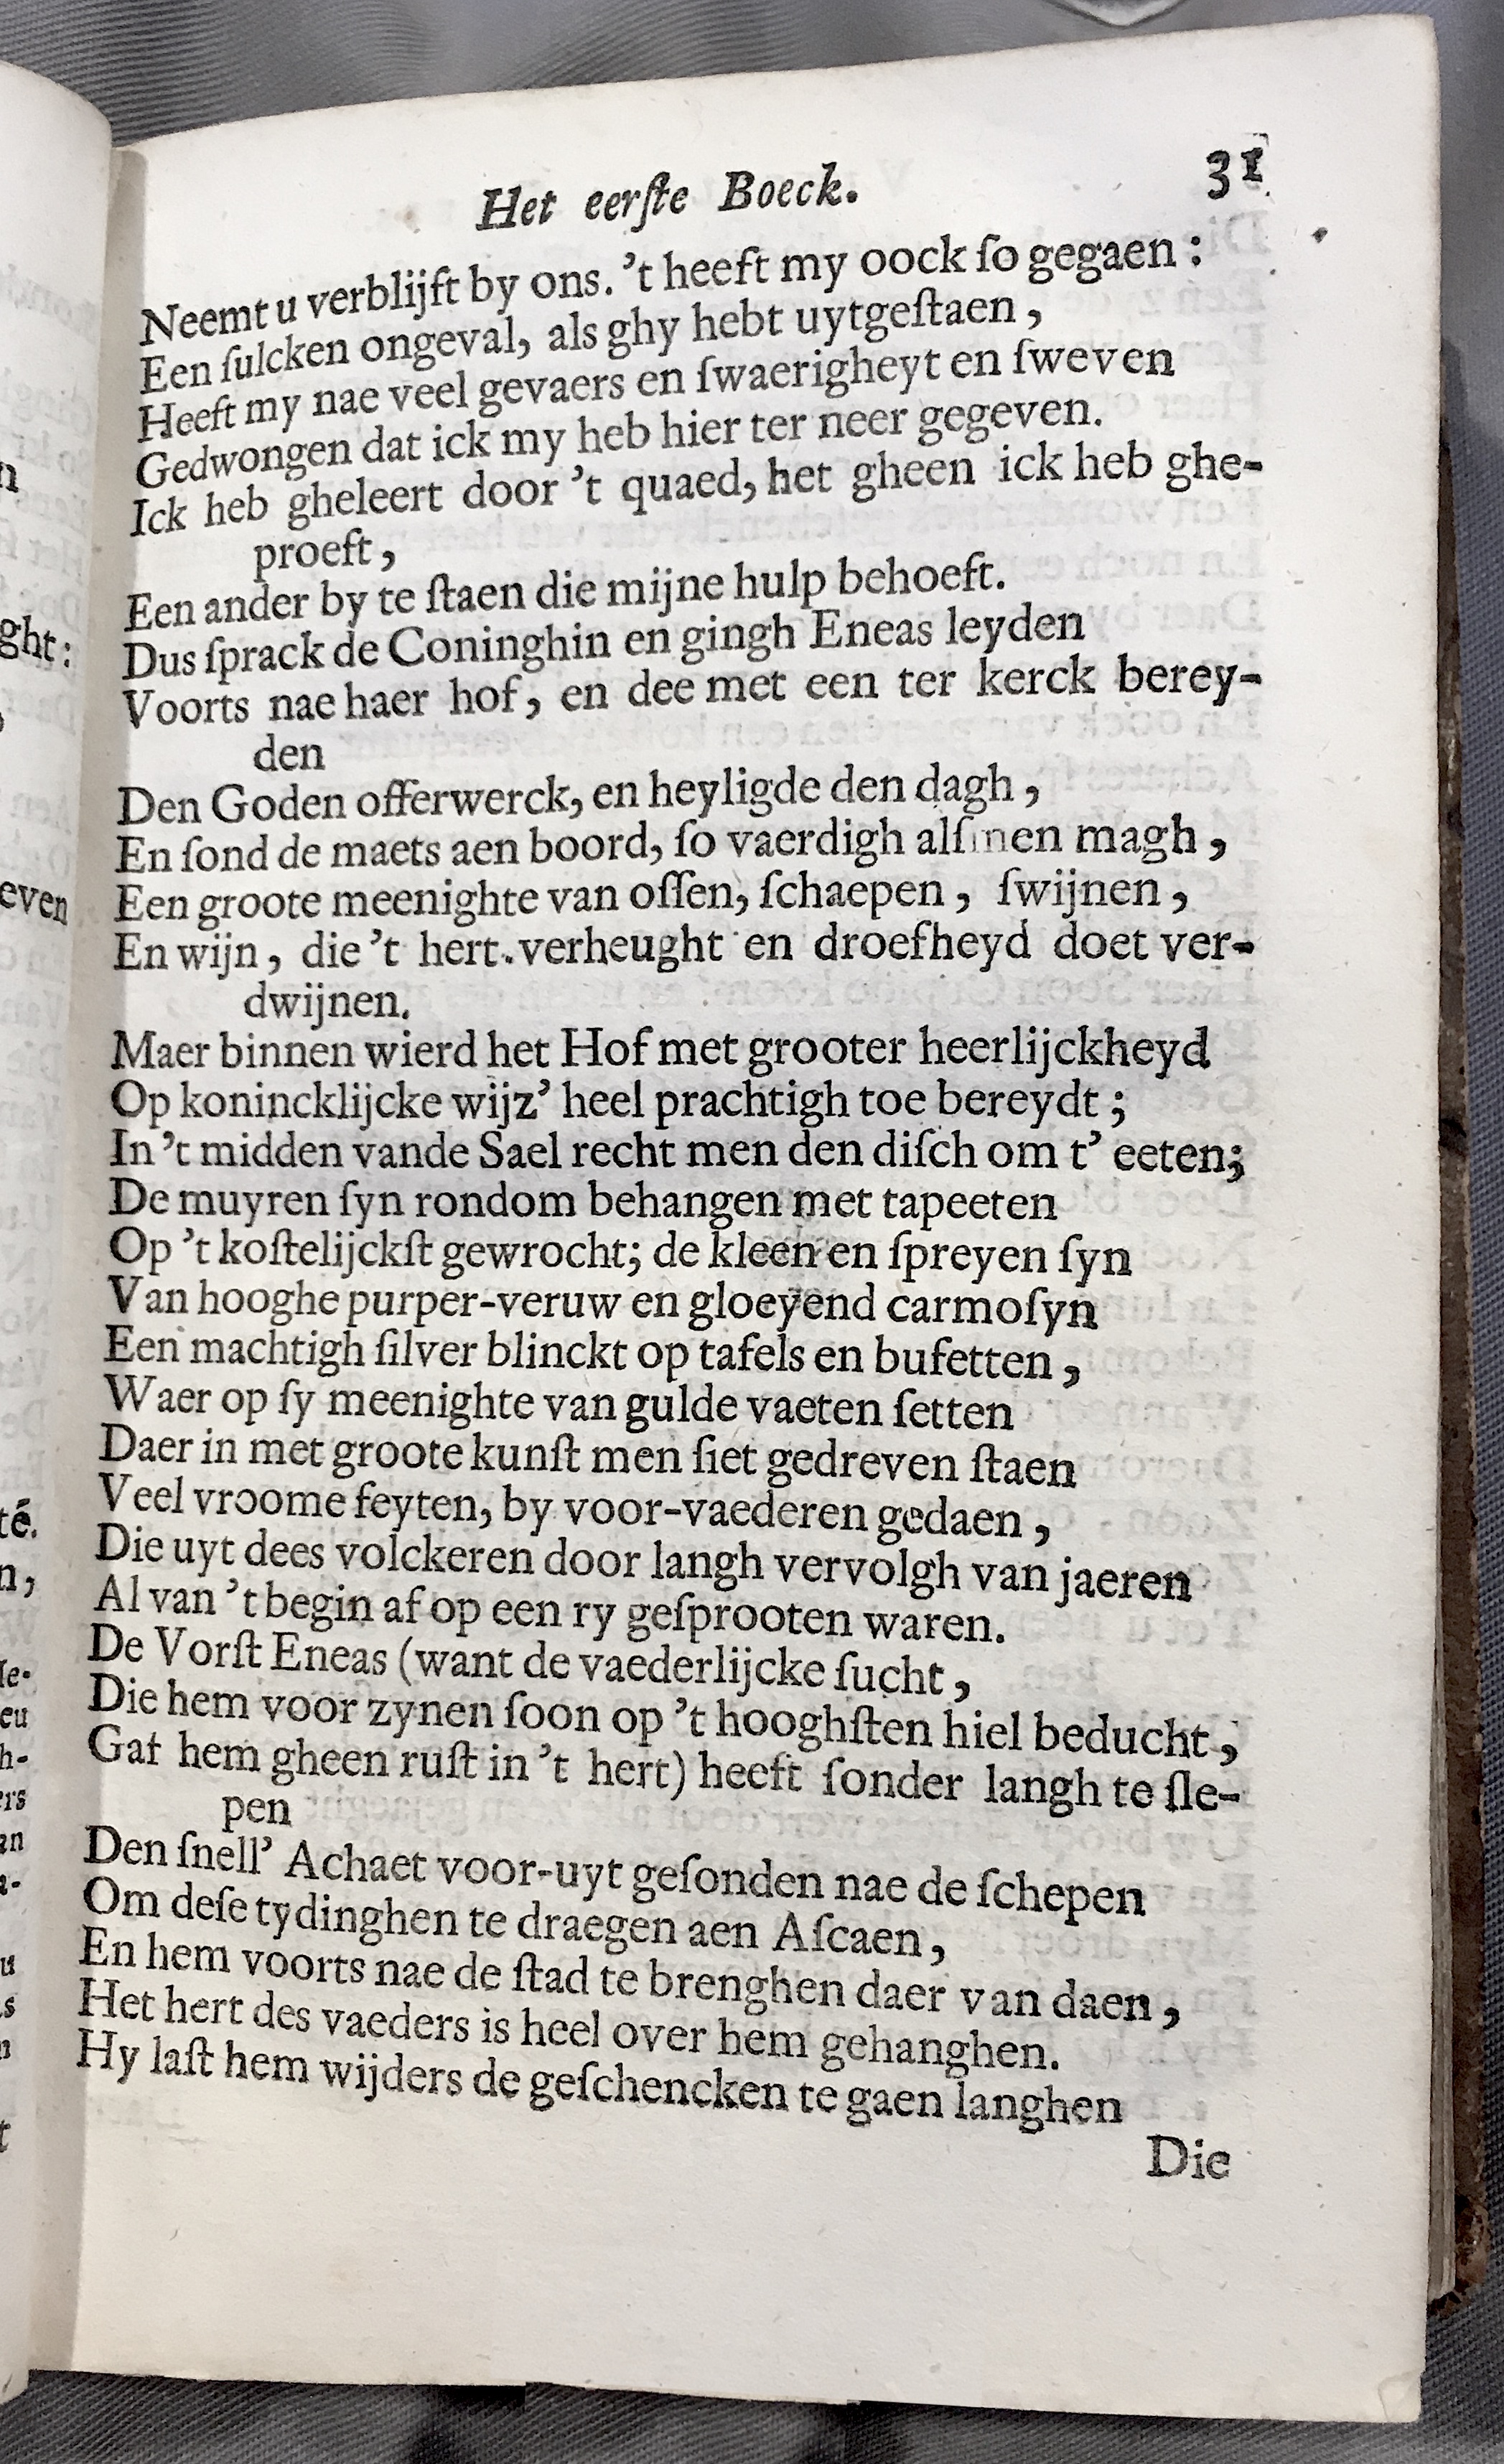 Het eerſte Boeck. 31
Neemt u verblijft by ons. 't heeft my oock ſo gegaen :
Een ſulcken ongeval, als ghy hebt uytgeſtaen ,
Heeft my nae veel gevaers en ſwaerigheyt en ſweven
Gedwongen dat ick my heb hier ter neer gegeven.
Ick heb gheleert door 't quaed, het gheen ick heb ghe-
proeft ,
Een ander by te ſtaen die mijne hulp behoeft.
Dus ſprack de Coninghin en gingh Eneas leyden
Voorts nae haer hof , en dee met een ter kerck berey-
den
Den Goden offerwerck, en heyligde den dagh ,
En ſond de maets aen boord, ſo vaerdigh alſmen magh ,
Een groote meenighte van oſſen, ſchaepen , ſwijnen ,
En wijn , die 't hert verheught en droefheyd doet ver-
dwijnen.
Maer binnen wierd het Hof met grooter heerlijckheyd
Op konincklijcke wijz' heel prachtigh toe bereydt ;
In 't midden vande Sael recht men den diſch om t' eeten;
De muyren ſyn rondom behangen met tapeeten
Op 't koſtelijckſt gewrocht; de kleen en ſpreyen ſyn
Van hooghe purper-veruw en gloeyend carmoſyn
Een machtigh ſilver blinckt op tafels en bufetten ,
Waer op ſy meenighte van gulde vaeten ſetten
Daer in met groote kunſt men ſiet gedreven ſtaen
Veel vroome feyten, by voor-vaederen gedaen ,
Die uyt dees volckeren door langh vervolgh van jaeren
Al van 't begin af op een ry geſprooten waren.
De Vorſt Eneas (want de vaederlijcke ſucht ,
Die hem voor zynen ſoon op 't hooghſten hiel beducht ,
Gaf hem gheen ruſt in 't hert) heeft ſonder langh te ſle-
pen
Den ſnell' Achaet voor-uyt geſonden nae de ſchepen
Om deſe tydinghen te draegen aen Aſcaen ,
En hem voorts nae de ſtad te brenghen daer van daen ,
Het hert des vaeders is heel over hem gehanghen.
Hy laſt hem wijders de geſchencken te gaen langhen
Die